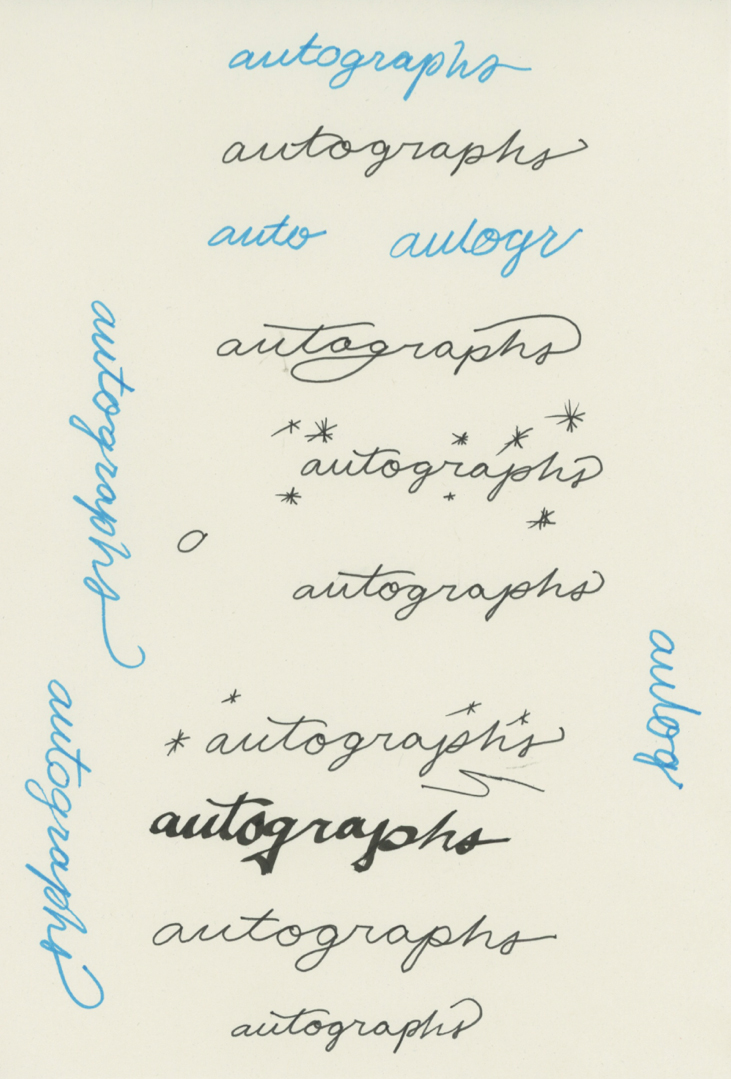 autographs
autographs
auto autogr
autographs
autographs
autographs
o
autographs
autographs
autog
autographs
autographs
autographs
autographs